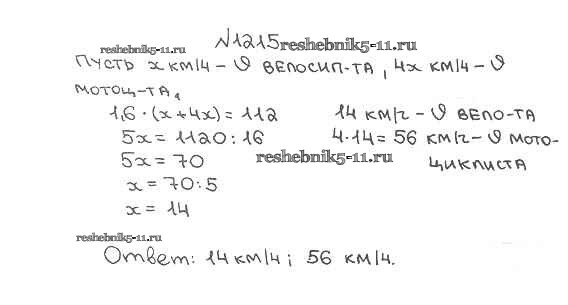 N1215 reshebnik5-11.ru
reshebnik5-11.ru
Пусть x км/ч – υ велосип-та, 4x км/ч – υ
мотоц-та,
1,6·(x+4x)=112
5x=1120:16
5x=70
x=70:5
x=14
14 км/ч – υ вело-та
4·14=56 км/ч – υ мото-
циклиста
reshebnik5-11.ru
reshebnik5-11.ru
Ответ: 14 км/ч; 56 км/ч.